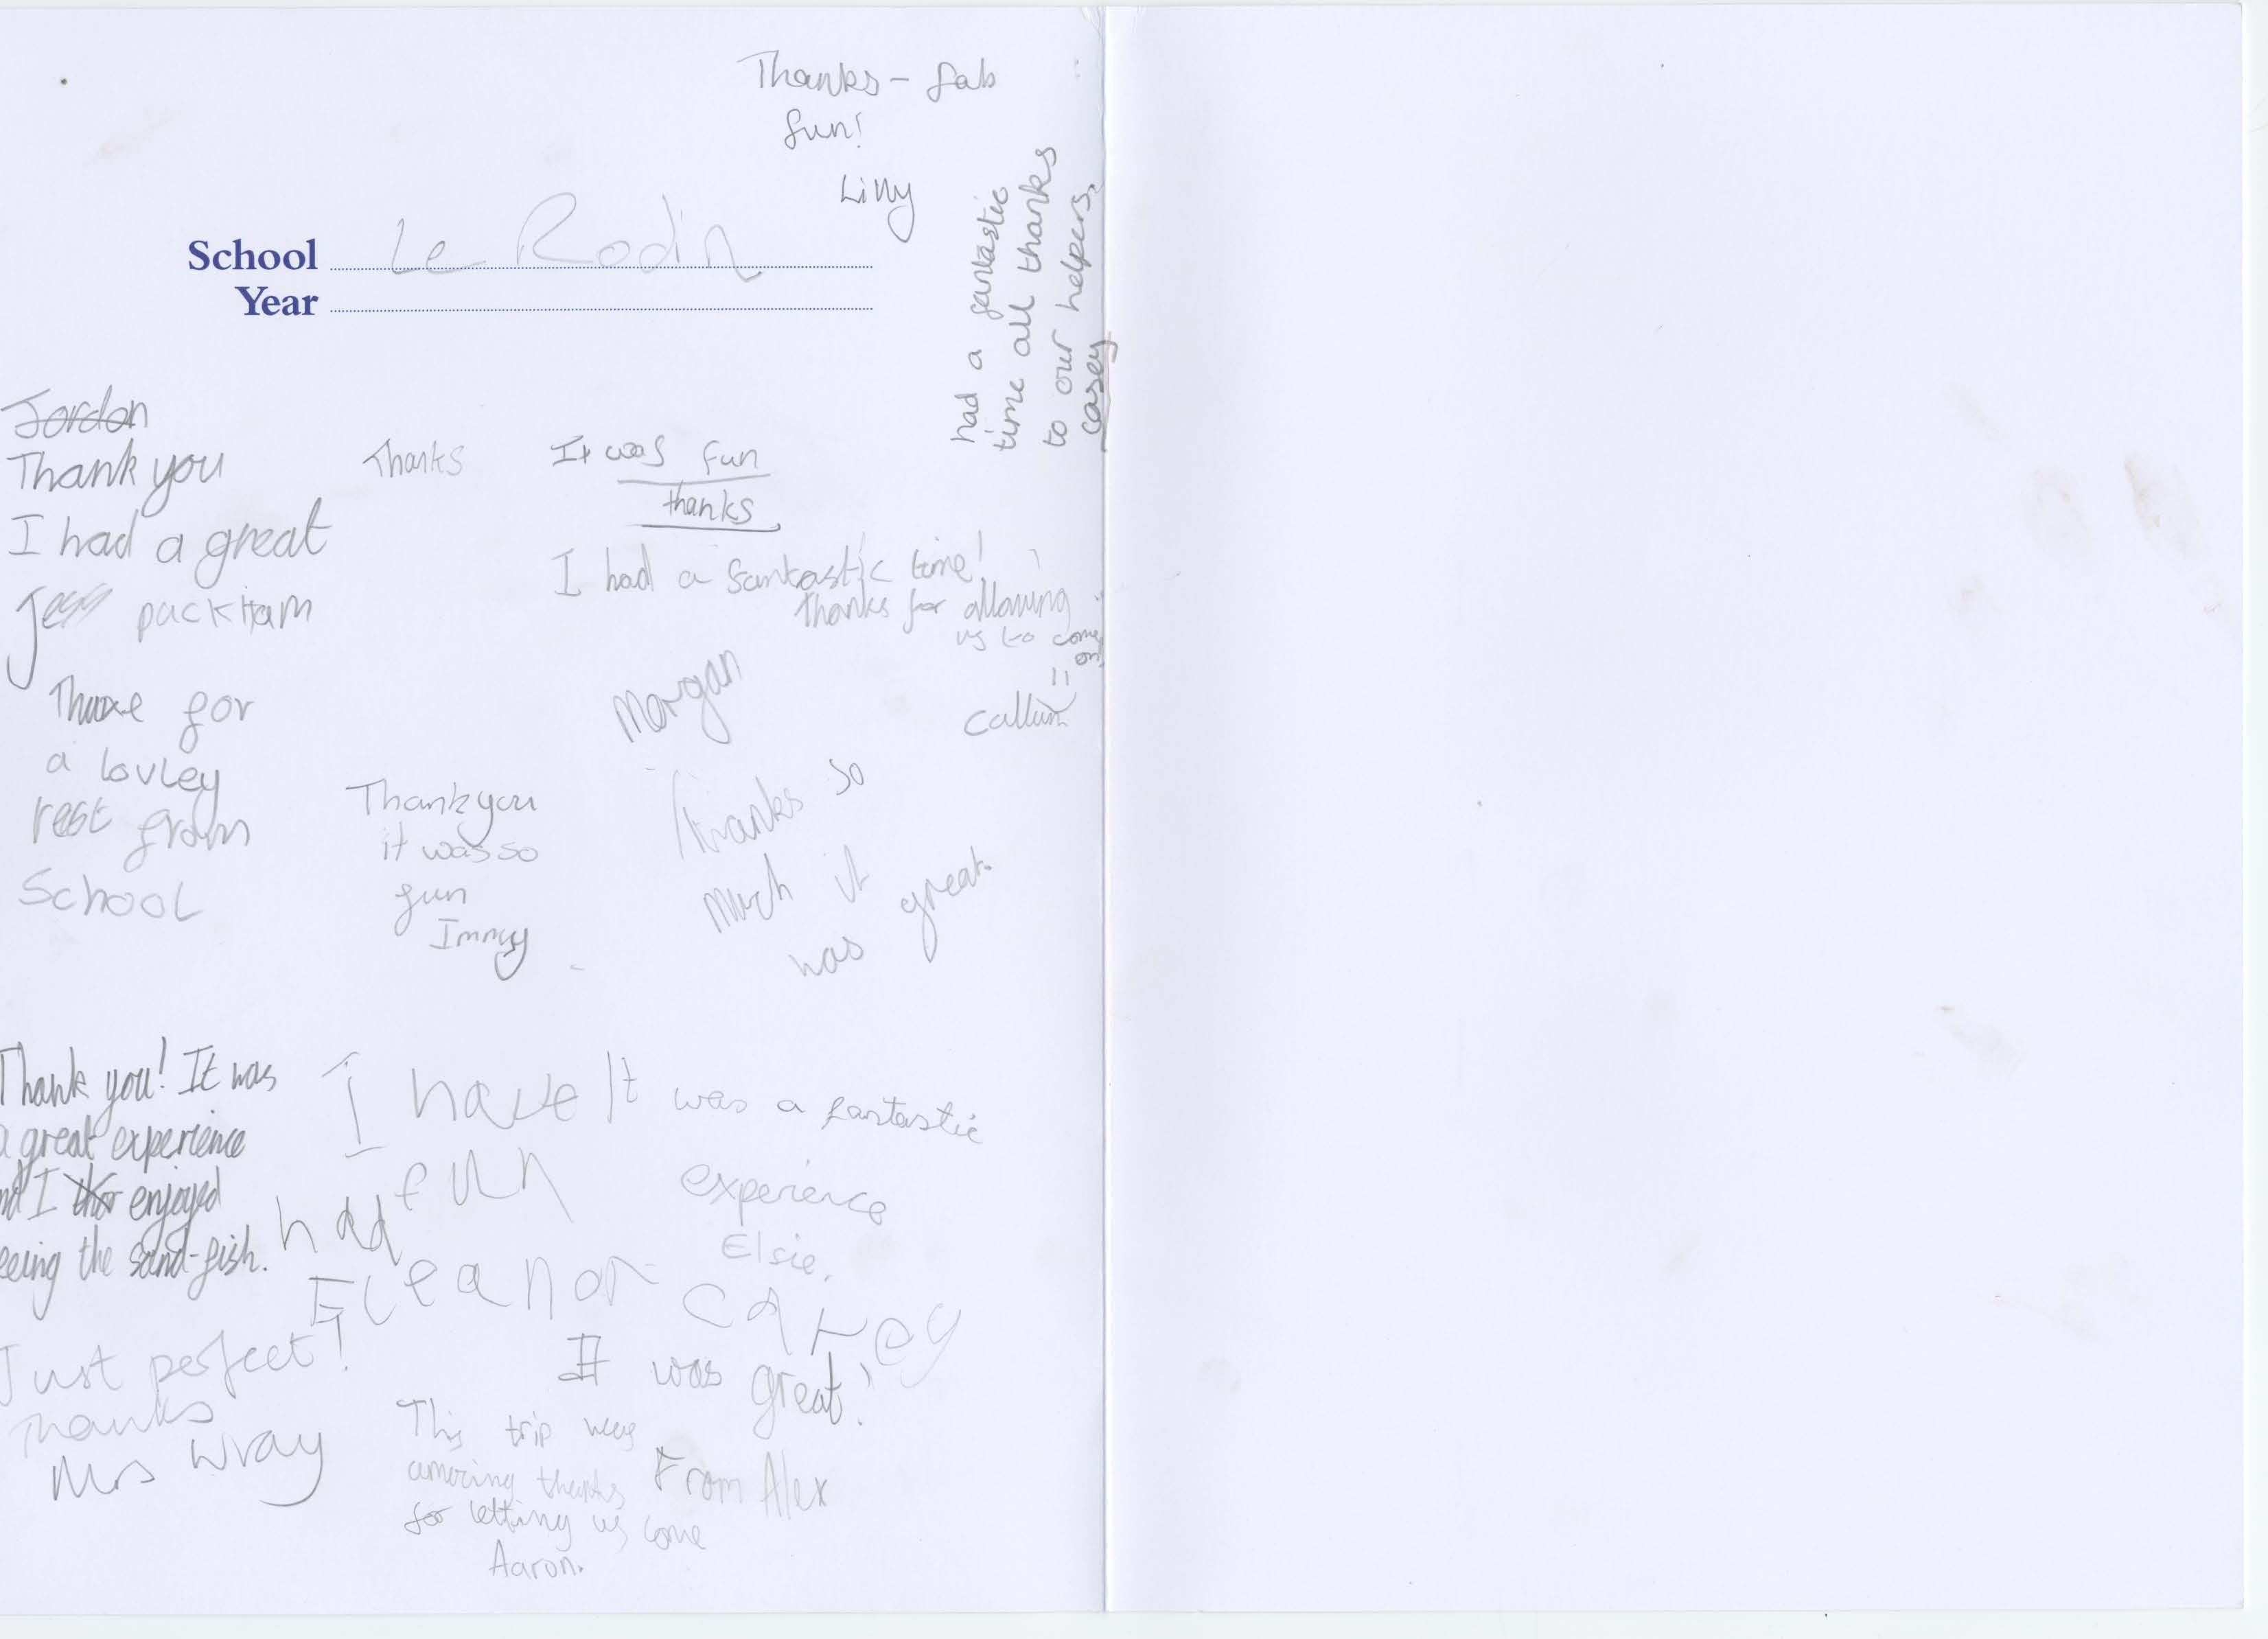 Thanks - fab
fun!
Lilly
School Le Rodin
Year
had a fantastic
time all thanks
to our helpers.
casey
Jordan
Thank you
I had a great
Jess packHam
Thanks
It was fun
thanks
I had a fantastic time!
Thanks for allowing
us to come
on
Callum
Morgan
for
a lovley
rest from
School
Thank you
it was so
fun
Immy
thanks so
much it
was great.
Thank you! It was
a great experience
nd I enjoyed
eeing the sand-fish.
I have
had fun
Eleanor carey
It was a fantastic
experience
Elsie.
Just perfect!
Thanks
Mrs Wray
It was great!
From Alex
This trip was
amazing thanks
for letting us come
Aaron.